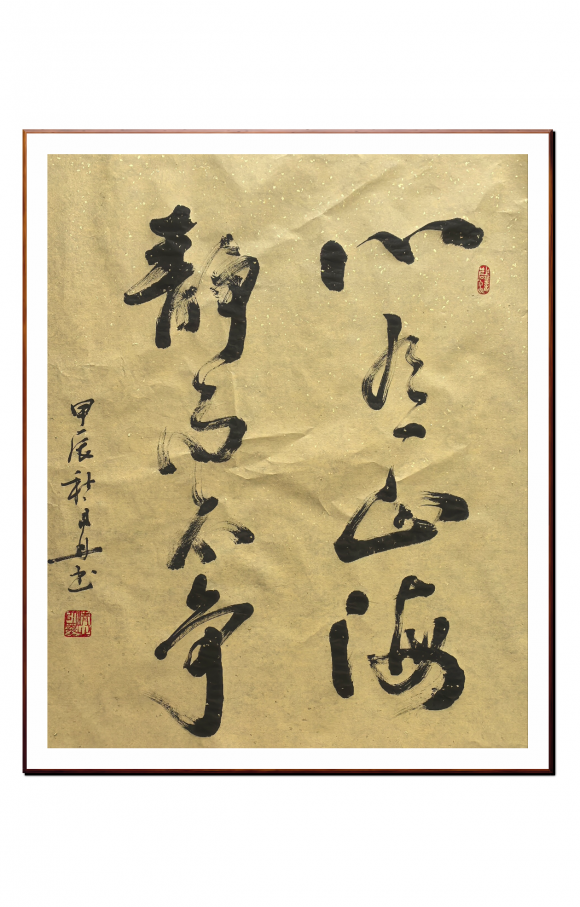 心有山海
静而不争
甲辰秋月丹书